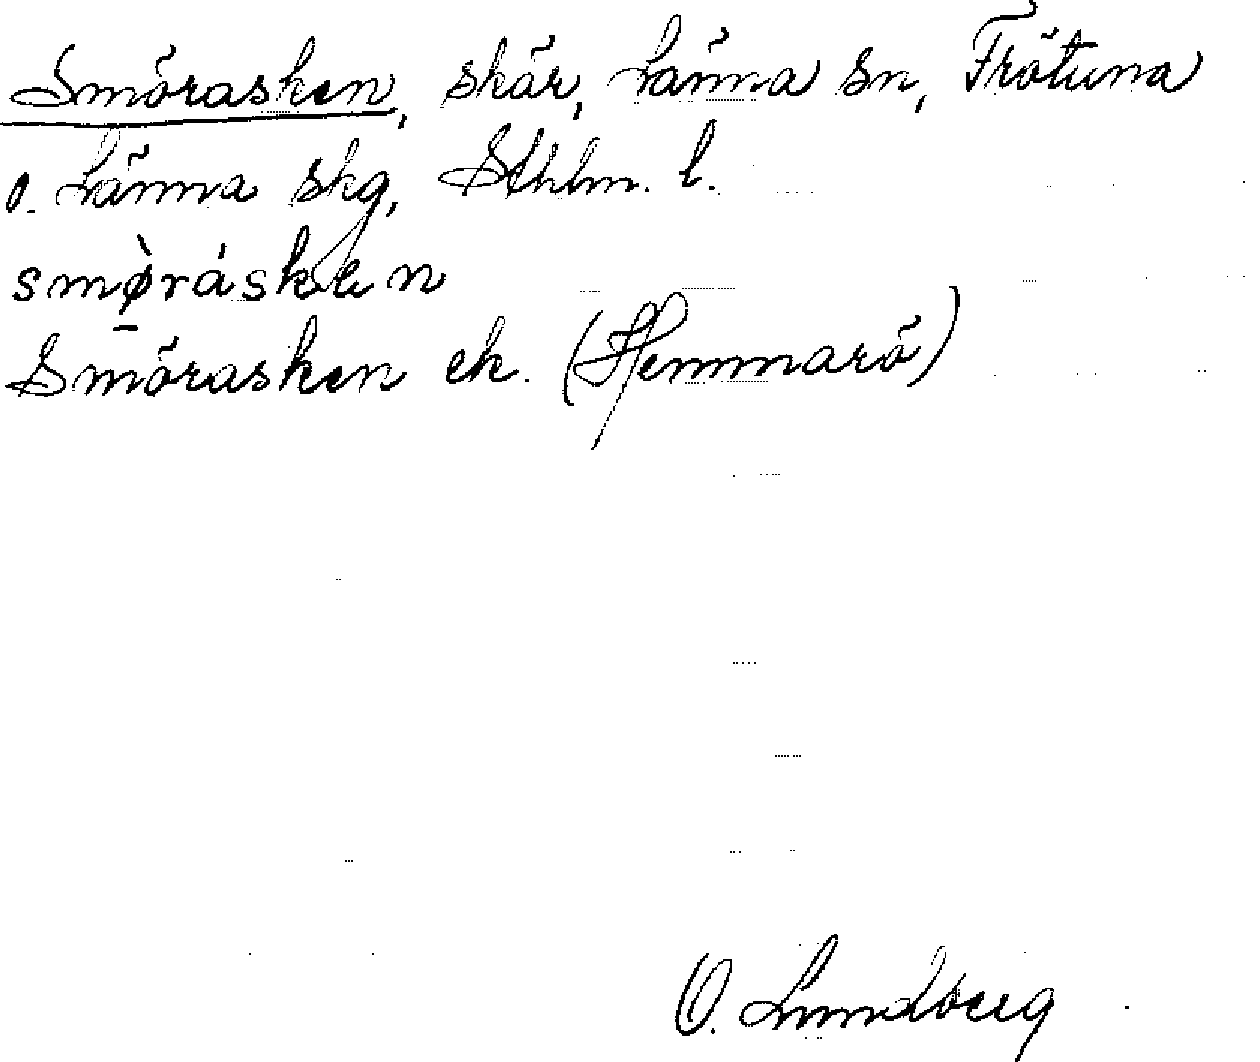 Smörasken, skär, Länna sn, Frötuna
o. Länna skg, Sthlm. l.
smø̀rásken
Smörasken ek. (Hemmarö)
O. Lundberg